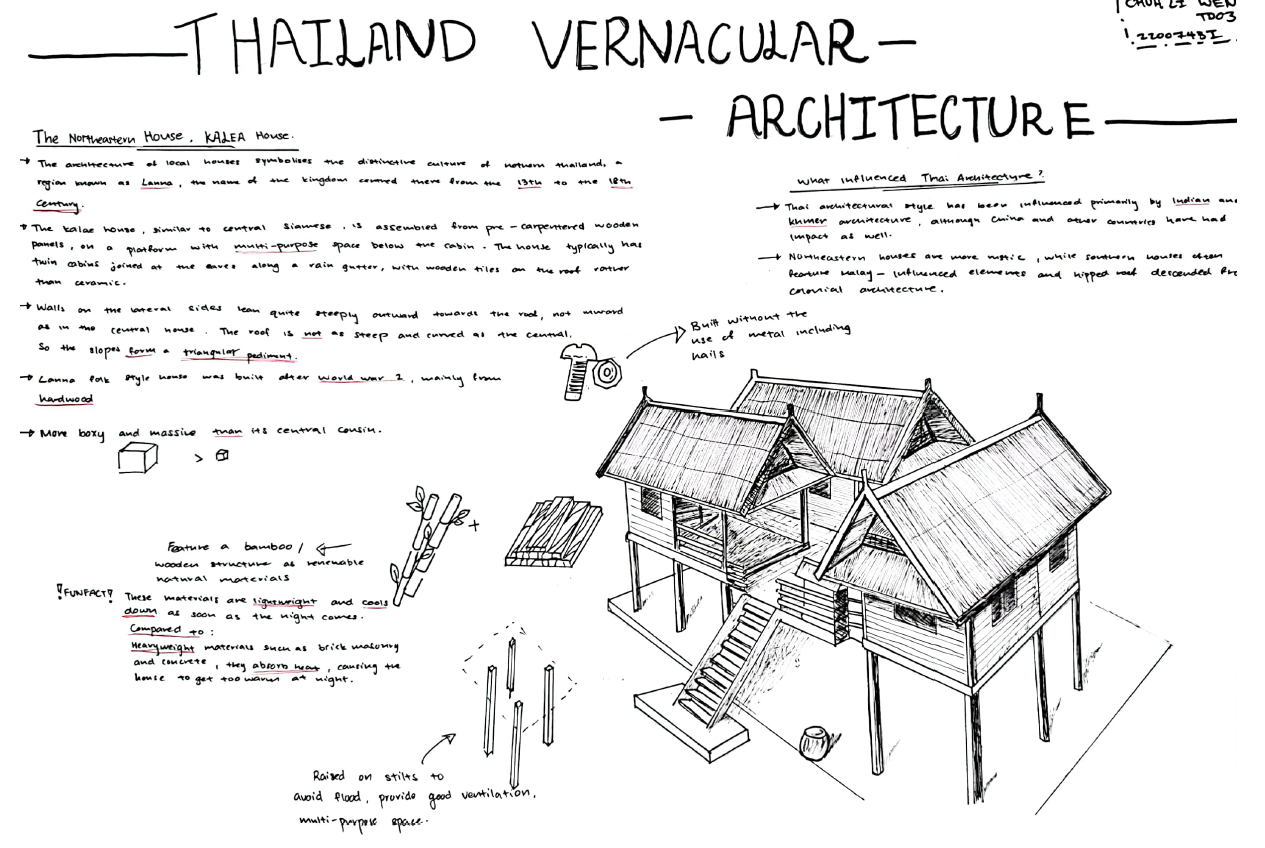 THAILAND VERNACULAR
ARCHITECTURE
CHUH LI WEN
TD03
The Northeastern House, KALEA House.
→ The architecture of local houses symbolises the distinctive culture of nothern thailand, a
region known as Lanna, the name of the kingdom centred there from the 13th to the 18th
Century.
→ The kalae house, similar to central Siamese, is assembled from pre-carpentered wooden
panels, on a platform with multi-purpose space below the cabin. The house typically has
twin cabins joined at the eaves along a rain gutter, with wooden tiles on the roof rather
than ceramic.
→ Walls on the lateral sides lean quite steeply outward towards the roof, not inward
as in the central house. The roof is not as steep and curved as the central.
So the slopes form a triangular pediment.
→ Lanna folk style house was built after world war 2, mainly from
hardwood
→ More boxy and massive than its central cousin.
>
What Influenced Thai Architecture?
→ Thai architectural style has been influenced primarily by Indian and
khmer architecture, although China and other countries have had
impact as well.
→ Northeastern houses are more rustic, while southern houses often
feature Malay-influenced elements and hipped roof descended
colonial architecture.
Built without the
use of metal including
nails
+
Feature a bamboo/
wooden structure as renewable
natural materials
!FUNFACT! These materials are lightwright and cools
down as soon as the night comes.
Compared to:
Heavyweight materials such as brick masonry
and concrete, they absorb heat, causing the
house to get too warm at night.
Raised on stilts to
avoid flood, provide good ventilation,
multi-purpose space.